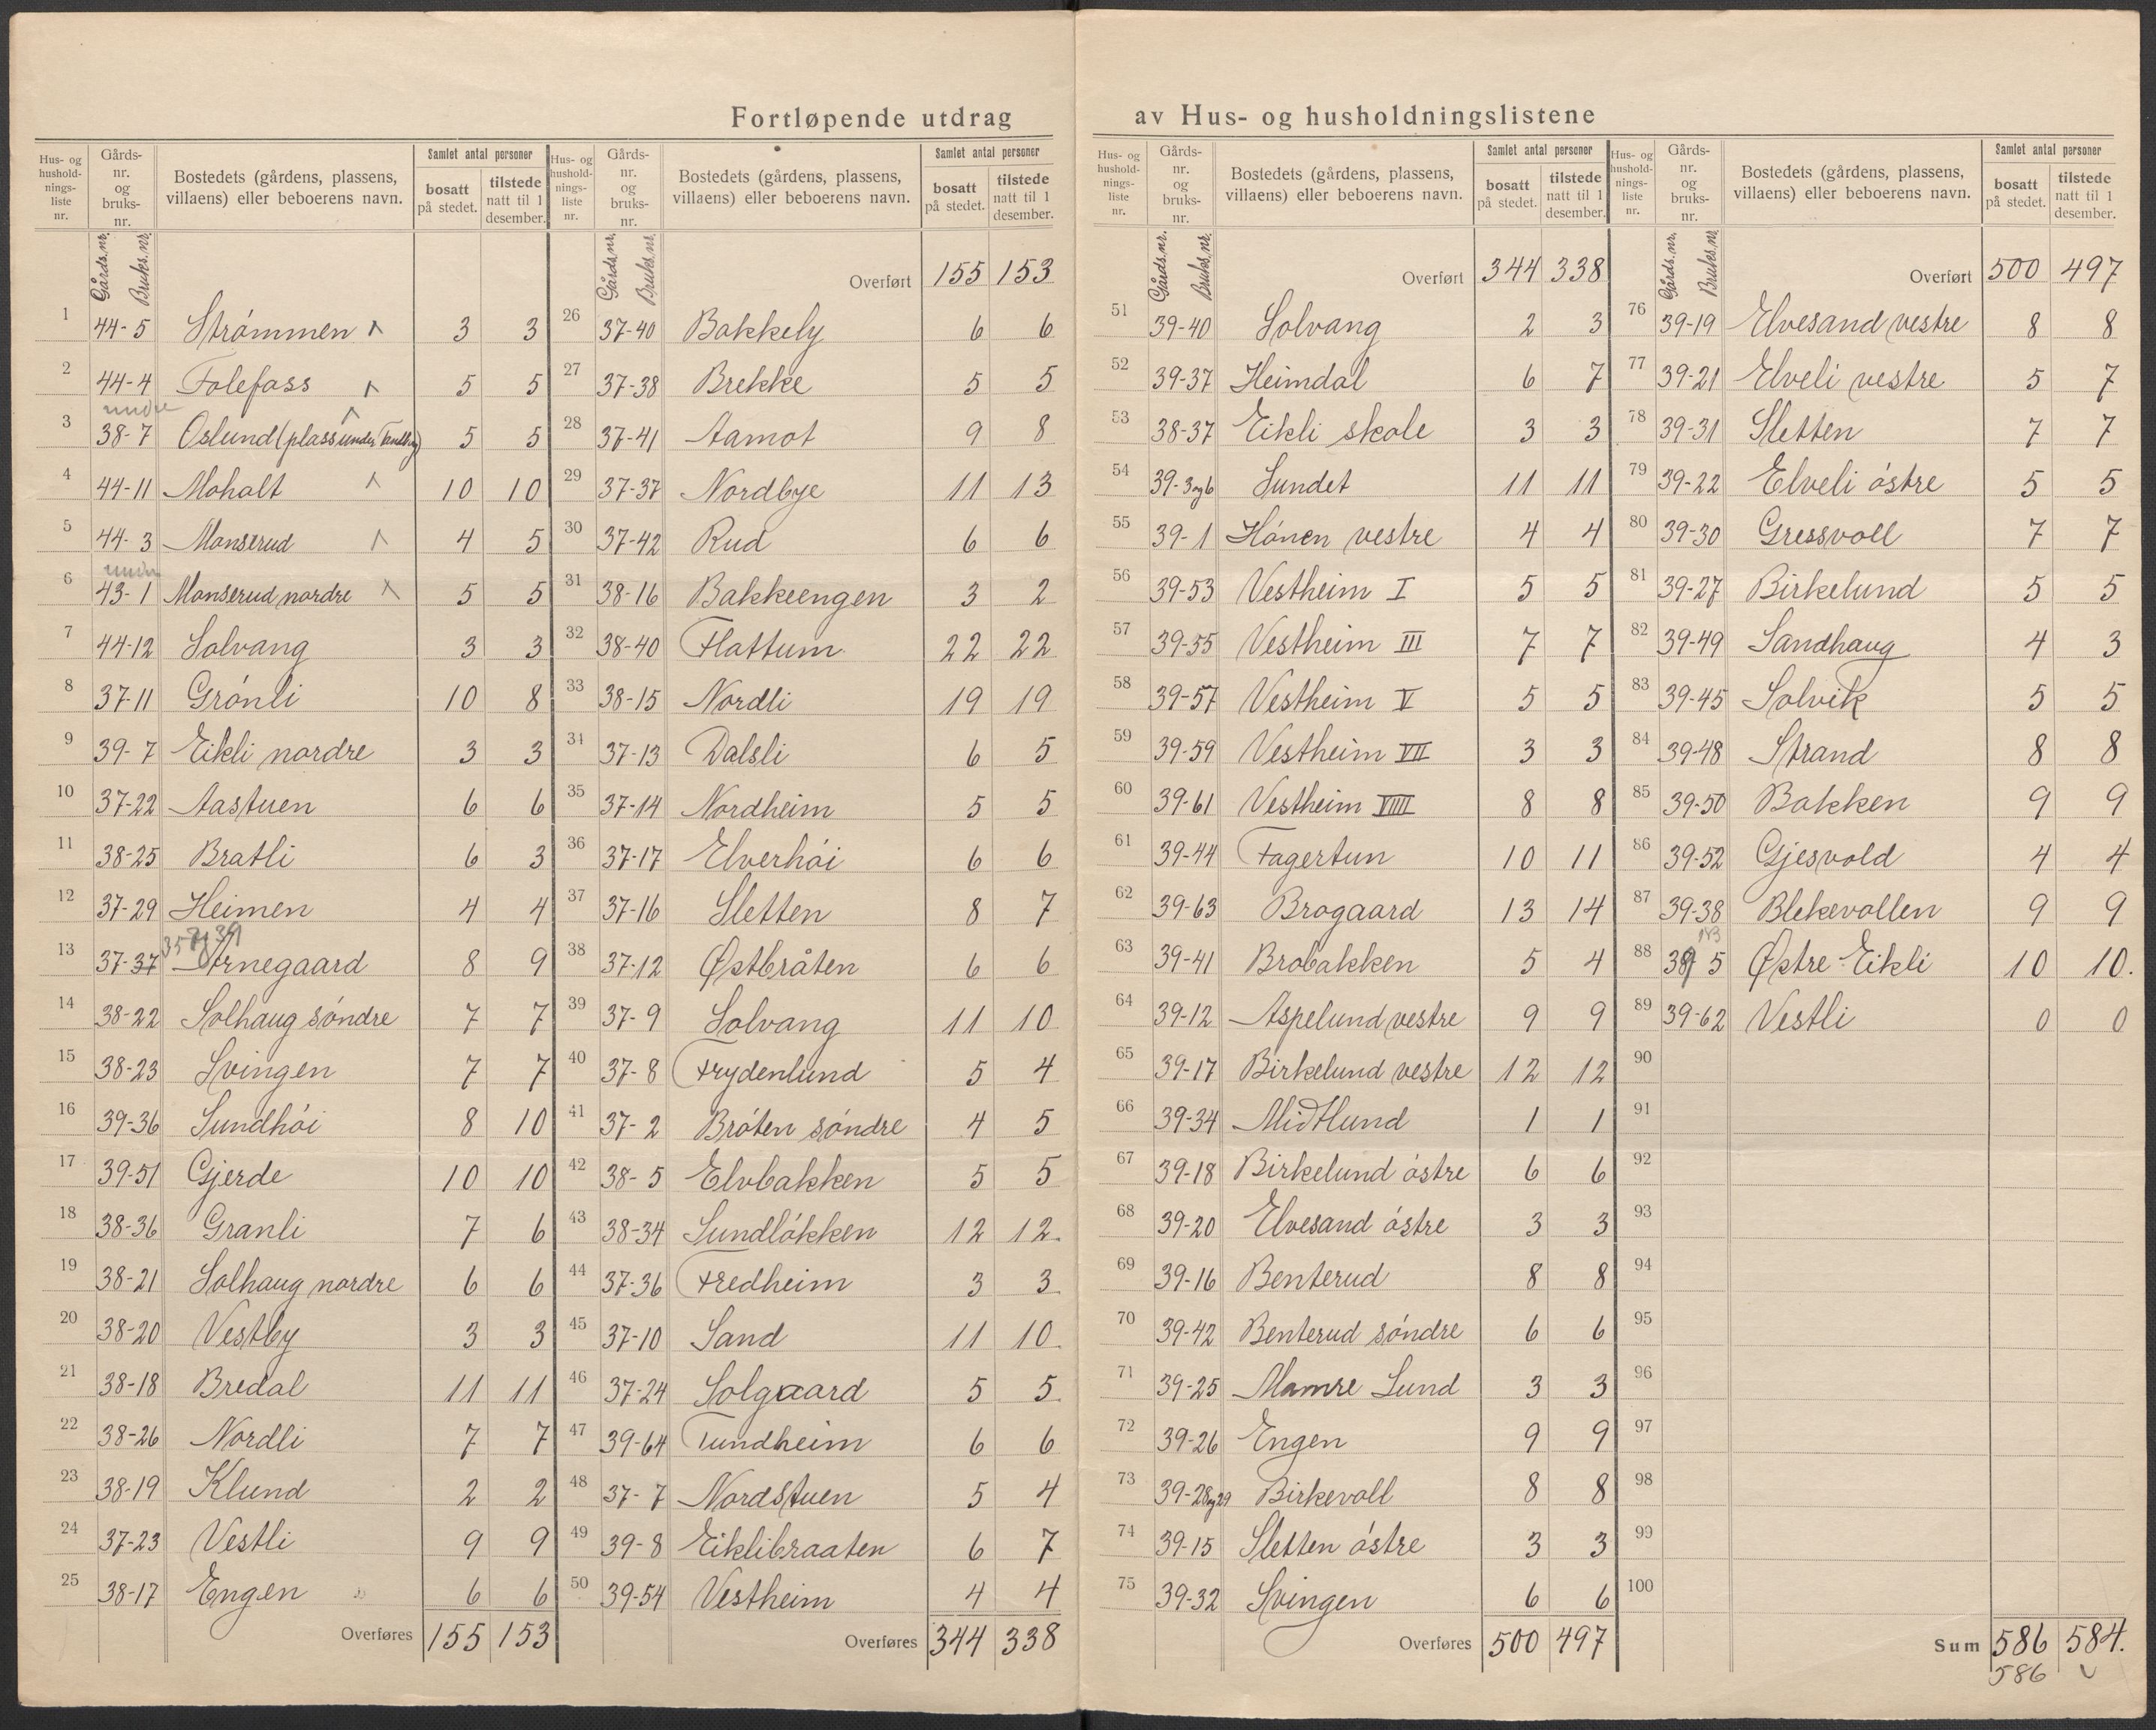 Fortløpende utdrag av Hus- og husholdningslistene
Hus- og husholdnings-liste nr. Gårds-nr. og bruks-nr. Bostedets (gårdens, plassens, villaens) eller beboerens navn. Samlet antal personer bosatt på stedet. tilstede natt til 1 desember.
Gårds.nr. Bruks.nr.
1 44-5 Strømmen 3 3
2 44-4 Folefass 5 5
under
3 38-7 Oslund (plass under Tandberg) 5 5
4 44-11 Mohalt 10 10
5 44-3 Monserud 4 5
under
6 43-1 Monserud nordre 5 5
7 44-12 Solvang 3 3
8 37-11 Grønli 10 8
9 39-7 Eikli nordre 3 3
10 37-22 Aastuen 6 6
11 38-25 Bratli 6 3
12 37-29 Heimen 4 4
13 37-37 Arnegaard 8 9
14 38-22 Solhaug søndre 7 7
15 38-23 Svingen 7 7
16 39-36 Sundhøi 8 10
17 39-51 Gjerde 10 10
18 38-36 Granli 7 6
19 38-21 Solhaug nordre 6 6
20 38-20 Vestby 3 3
21 38-18 Bredal 11 11
22 38-26 Nordli 7 7
23 38-19 Klund 2 2
24 37-23 Vestli 9 9
25 38-17 Engen 6 6
Overføres 155 153
Hus- og husholdnings-liste nr. Gårds-nr. og bruks-nr. Bostedets (gårdens, plassens, villaens) eller beboerens navn. Samlet antal personer bosatt på stedet. tilstede natt til 1 desember.
Gårds.nr. Bruks.nr. Overført 155 153
26 37-40 Bakkely 6 6
27 37-38 Brekke 5 5
28 37-41 Aamot 9 8
29 37-37 Nordbye 11 13
30 37-42 Rud 6 6
31 38-16 Bakkeengen 3 2
32 38-40 Flattum 22 22
33 38-15 Nordli 19 19
34 37-13 Dalsli 6 5
35 37-14 Nordheim 5 5
36 37-17 Elverhøi 6 6
37 37-16 Sletten 8 7
38 37-12 Østbråten 6 6
39 37-9 Solvang 11 10
40 37-8 Frydenlund 5 4
41 37-2 Bråten søndre 4 5
42 38-5 Elvbakken 5 5
43 38-34 Sundløkken 12 12.
44 37-36 Fredheim 3 3
45 37-10 Sand 11 10.
46 37-24 Solgaard 5 5.
47 39-64 Tundheim 6 6
48 37-7 Nordstuen 5 4
49 39-8 Eiklibraaten 6 7
50 39-54 Vestheim 4 4
Overføres 344 338
Hus- og husholdnings-liste nr. Gårds-nr. og bruks-nr. Bostedets (gårdens, plassens, villaens) eller beboerens navn. Samlet antal personer bosatt på stedet. tilstede natt til 1 desember.
Gårds.nr. Bruks.nr. Overført 344 338
51 39-40 Solvang 2 3
52 39-37 Heimdal 6 7
53 38-37 Eikli skole 3 3
54 39-3og6 Sundet 11 11
55 39-1 Hønen vestre 4 4
56 39-53 Vestheim I 5 5
57 39-55 Vestheim III 7 7
58 39-57 Vestheim V 5 5
59 39-59 Vestheim VII 3 3
60 39-61 Vestheim VIIII 8 8
61 39-44 Fagertun 10 11
62 39-63 Brogaard 13 14
63 39-41 Brobakken 5 4
64 39-12 Aspelund vestre 9 9
65 39-17 Birkelund vestre 12 12
66 39-34 Midtlund 1 1
67 39-18 Birkelund østre 6 6
68 39-20 Elvesand østre 3 3
69 39-16 Benterud 8 8
70 39-42 Benterud søndre 6 6
71 39-25 Mamre Lund 3 3
72 39-26 Engen 9 9
73 39-28og29 Birkevoll 8 8
74 39-15 Sletten østre 3 3
75 39-32 Svingen 6 6
Overføres 500 497
Hus- og husholdnings-liste nr. Gårds-nr. og bruks-nr. Bostedets (gårdens, plassens, villaens) eller beboerens navn. Samlet antal personer bosatt på stedet. tilstede natt til 1 desember.
Gårds.nr. Bruks.nr. Overført 500 497
76 39-19 Elvesand vestre 8 8
77 39-21 Elveli vestre 5 7
78 39-31 Sletten 7 7
79 39-22 Elveli østre 5 5
80 39-30 Gressvoll 7 7
81 39-27 Birkelund 5 5
82 39-49 Sandhaug 4 3
83 39-45 Solvik 5 5
84 39-48 Strand 8 8
85 39-50 Bakken 9 9
86 39-52 Gjesvold 4 4
87 39-38 Blekevollen 9 9
88 39 5 Østre Eikli 10 10.
89 39-62 Vestli 0 0
90
91
92
93
94
95
96
97
98
99
100
Sum 586 584.
586